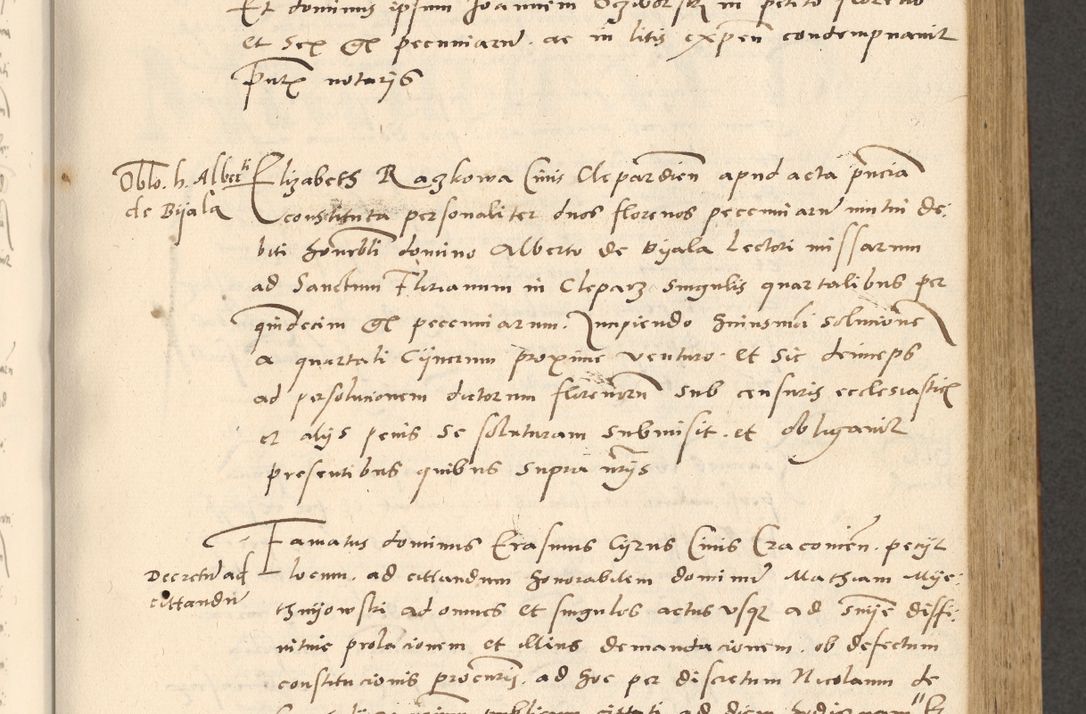 Et dominus ipsum Joannem Ozworski in petito floreno
et sex gr pecuniarū ac in litis expen condempnavit
pnte notarijs
Oblo. h. Alberti
de Bijala
Elizabeth Raczkowa Civis Clepardien apud acta pncia
constituta personaliter duos florenos pecuniarū mutui de-
biti honorbli domino Alberto de Bijala lectori missarum
ad Sanctum Florianum in Cleparz singulis quartalibus per
quindecim gr pecuniarum. Incipiendo huiusmoi solucionē
a quartali Cijnerum proxime venturo. et sic deinceps
ad persolucionem dictorum florenorū sub censuris ecclesiastic
et alijs penis se soluturam submisit et obligavit
presentibus quibus supra ntrijs
Decretū ad
cittandū
Famatus dominus Erasmus Cyrus Civis Cracovien. pecijt
locum ad cittandum honorabilem dominū Mathiam Mije-
chijowski ad omnes et singulos actus usq ad snije diffi-
nitive prolacionem et illius demandacionem. ob defectum
constitucionis procuratorij. ad hoc per discretum Nicolaum de
publicum cittati ad diem hodiernam